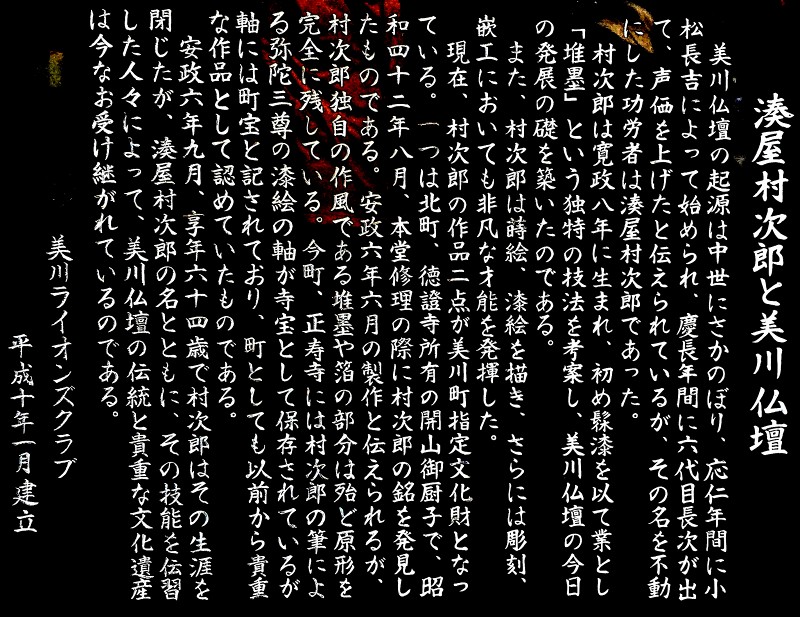 湊屋村次郎と美川仏壇
美川仏壇の起源は中世にさかのぼり、応仁年間に小
松長吉によって始められ、慶長年間に六代目長次が出
て、声価を上げたと伝えられているが、その名を不動
にした功労者は湊屋村次郎であった。
村次郎は寛政八年に生まれ、初め髹漆を以て業とし
「堆墨」という独特の技法を考案し、美川仏壇の今日
の発展の礎を築いたのである。
また、村次郎は蒔絵、漆絵を描き、さらには彫刻、
嵌工においても非凡な才能を発揮した。
現在、村次郎の作品二点が美川町指定文化財となっ
ている。一つは北町、徳證寺所有の開山御厨子で、昭
和四十二年八月、本堂修理の際に村次郎の銘を発見し
たものである。安政六年六月の製作と伝えられるが、
村次郎独自の作風である堆墨や箔の部分は殆ど原形を
完全に残している。今町、正寿寺には村次郎の筆によ
る弥陀三尊の漆絵の軸が寺宝として保存されているが
軸には町宝と記されており、町としても以前から貴重
な作品として認めていたものである。
安政六年九月、享年六十四歳で村次郎はその生涯を
閉じたが、湊屋村次郎の名とともに、その技能を伝習
した人々によって、美川仏壇の伝統と貴重な文化遺産
は今なお受け継がれているのである。
美川ライオンズクラブ
平成十年一月建立